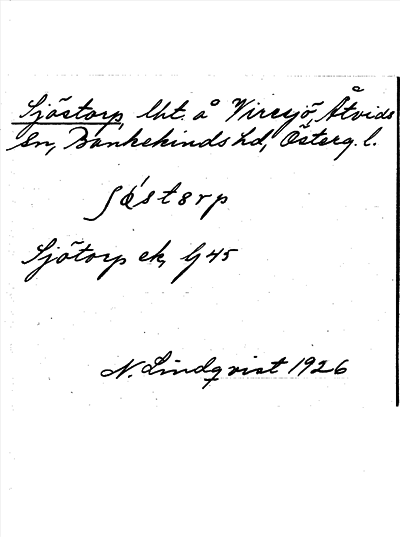 Sjöstorp, lht. å Viresjö, Åtvids
sn, Bankekinds hd, Österg. l.
ʃǿstɵrp
Sjötorp ek, G 45
N. Lindqvist 1926